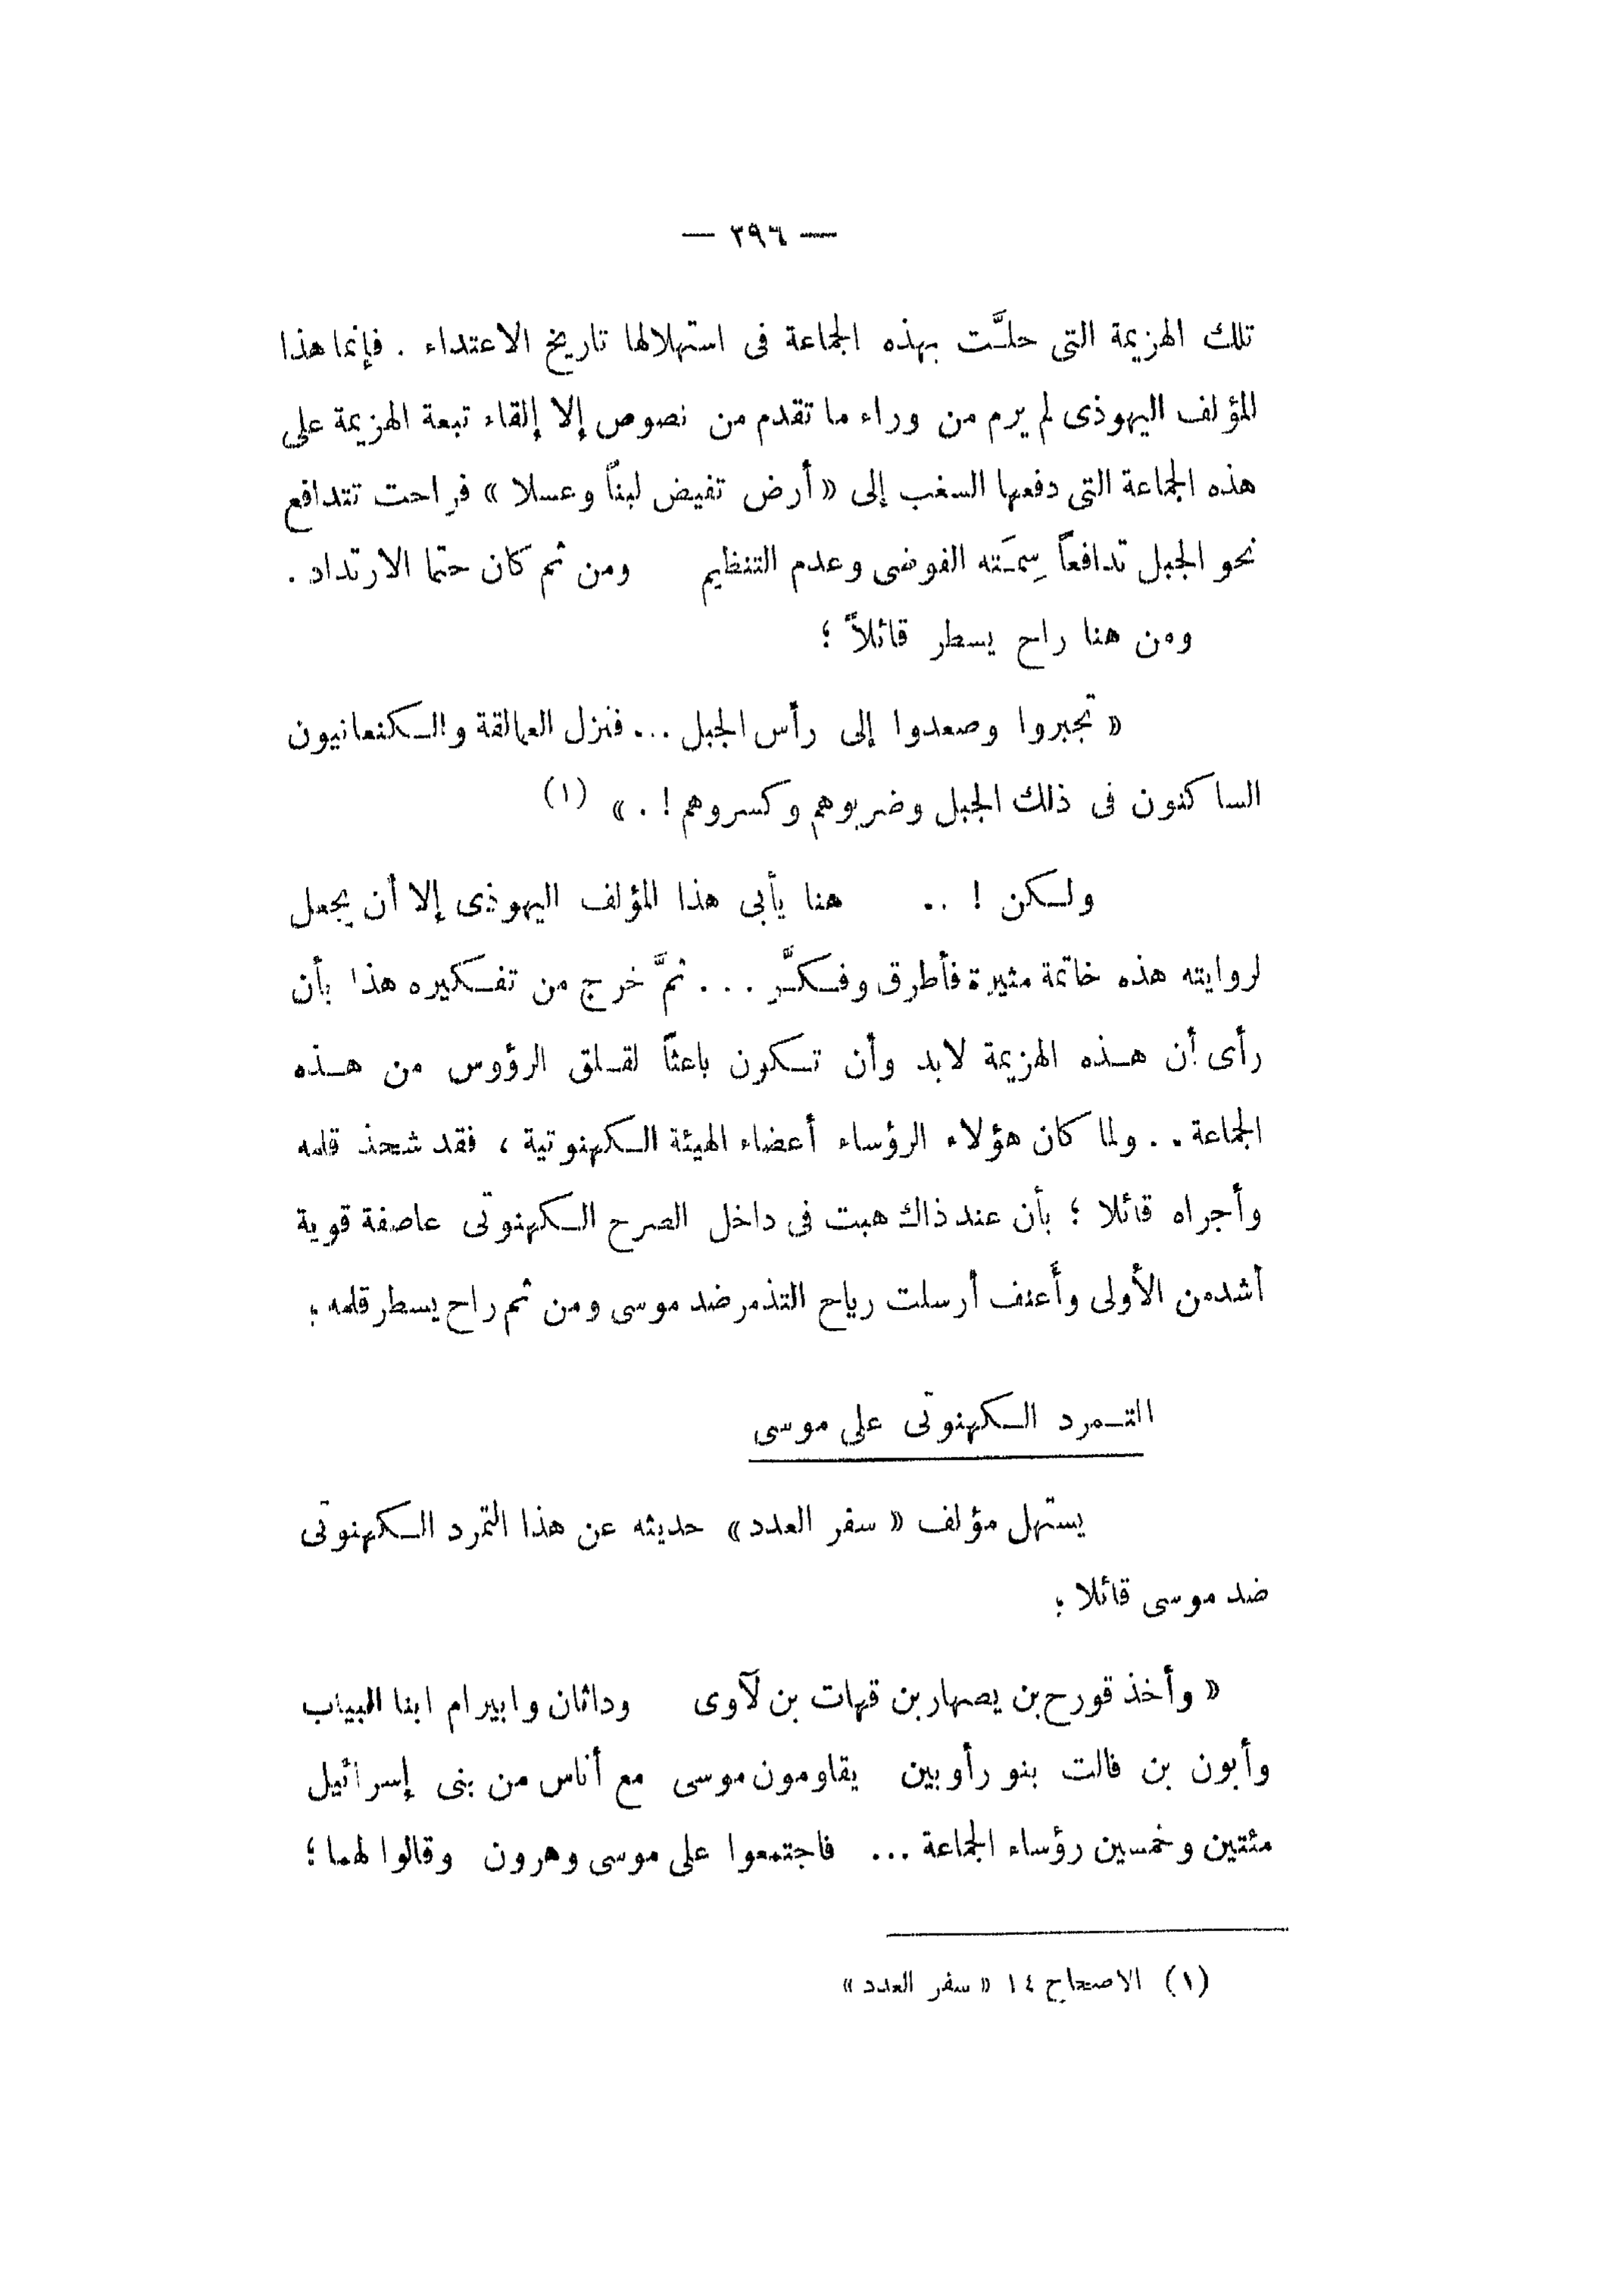 — ٢٩٦ —
تلك الهزيمة التى حلَّت بهذه الجماعة فى استهلالها تاريخ الاعتداء . فإنما هذا
المؤلف اليهوذى لم يرم من وراء ما تقدم من نصوص إلا إلقاء تبعة الهزيمة على
هذه الجماعة التى دفعها السغب إلى « أرض تفيض لبناً وعسلا » فراحت تتدافع
نحو الجبل تدافعاً سِمَته الفوضى وعدم التنظيم ومن ثم كان حتما الارتداد .
ومن هنا راح يسطر قائلاً ؛
« تجبروا وصعدوا إلى رأس الجبل ... فنزل العمالقة والكنعانيون
الساكنون فى ذلك الجبل وضربوهم وكسروهم ! . » (١)
ولكن ! .. هنا يأبى هذا المؤلف اليهوذى إلا أن يجعل
لروايته هذه خاتمة مثيرة فأطرق وفكَّر ... ثمَّ خرج من تفكيره هذا بأن
رأى أن هذه الهزيمة لابد وأن تكون باعثاً لقلق الرؤوس من هذه
الجماعة .. ولما كان هؤلاء الرؤساء أعضاء الهيئة الكهنوتية ، فقد شحذ قلمه
وأجراه قائلا ؛ بأن عند ذاك هبت فى داخل الصرح الكهنوتى عاصفة قوية
أشد من الأولى وأعنف أرسلت رياح التذمر ضد موسى ومن ثم راح يسطر قلمه ؛
التمرد الكهنوتى على موسى
يستهل مؤلف « سفر العدد » حديثه عن هذا التمرد الكهنوتى
ضد موسى قائلا ؛
« وأخذ قورح بن يصهار بن قهات بن لآوى وداثان وابيرام ابنا البياب
وأبون بن فالت بنو رأوبين يقاومون موسى مع أناس من بنى إسرائيل
مئتين وخمسين رؤساء الجماعة ... فاجتمعوا على موسى وهرون وقالوا لهما ؛
(١) الاصحاح ١٤ « سفر العدد »